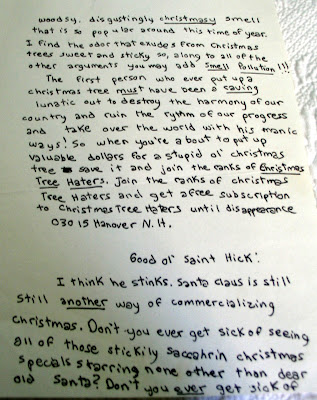 woodsy, disgustingly christmasy smell
that is so popular around this time of year.
I find the odor that exudes from Christmas
trees sweet and sticky so, along to all of the
other arguments you may add smell pollution!!!
The first person who ever put up a
christmas tree must have been a raving
lunatic out to destroy the harmony of our
country and ruin the rythm of our progress
and take over the world with his manic
ways! So when you're about to put up
valuable dollars for a stupid ol' christmas
tree save it and join the ranks of Christmas
Tree Haters. Join the ranks of christmas
Tree Haters and get a free subscription
to Christmas Tree Haters until disappearance
03015 Hanover N.H.
Good ol' Saint Nick!
I think he stinks. Santa claus is still
still another way of commercializing
christmas. Don't you ever get sick of seeing
all of those stickily saccahrin christmas
specials starring none other than dear
old Santa? Don't you ever get sick of